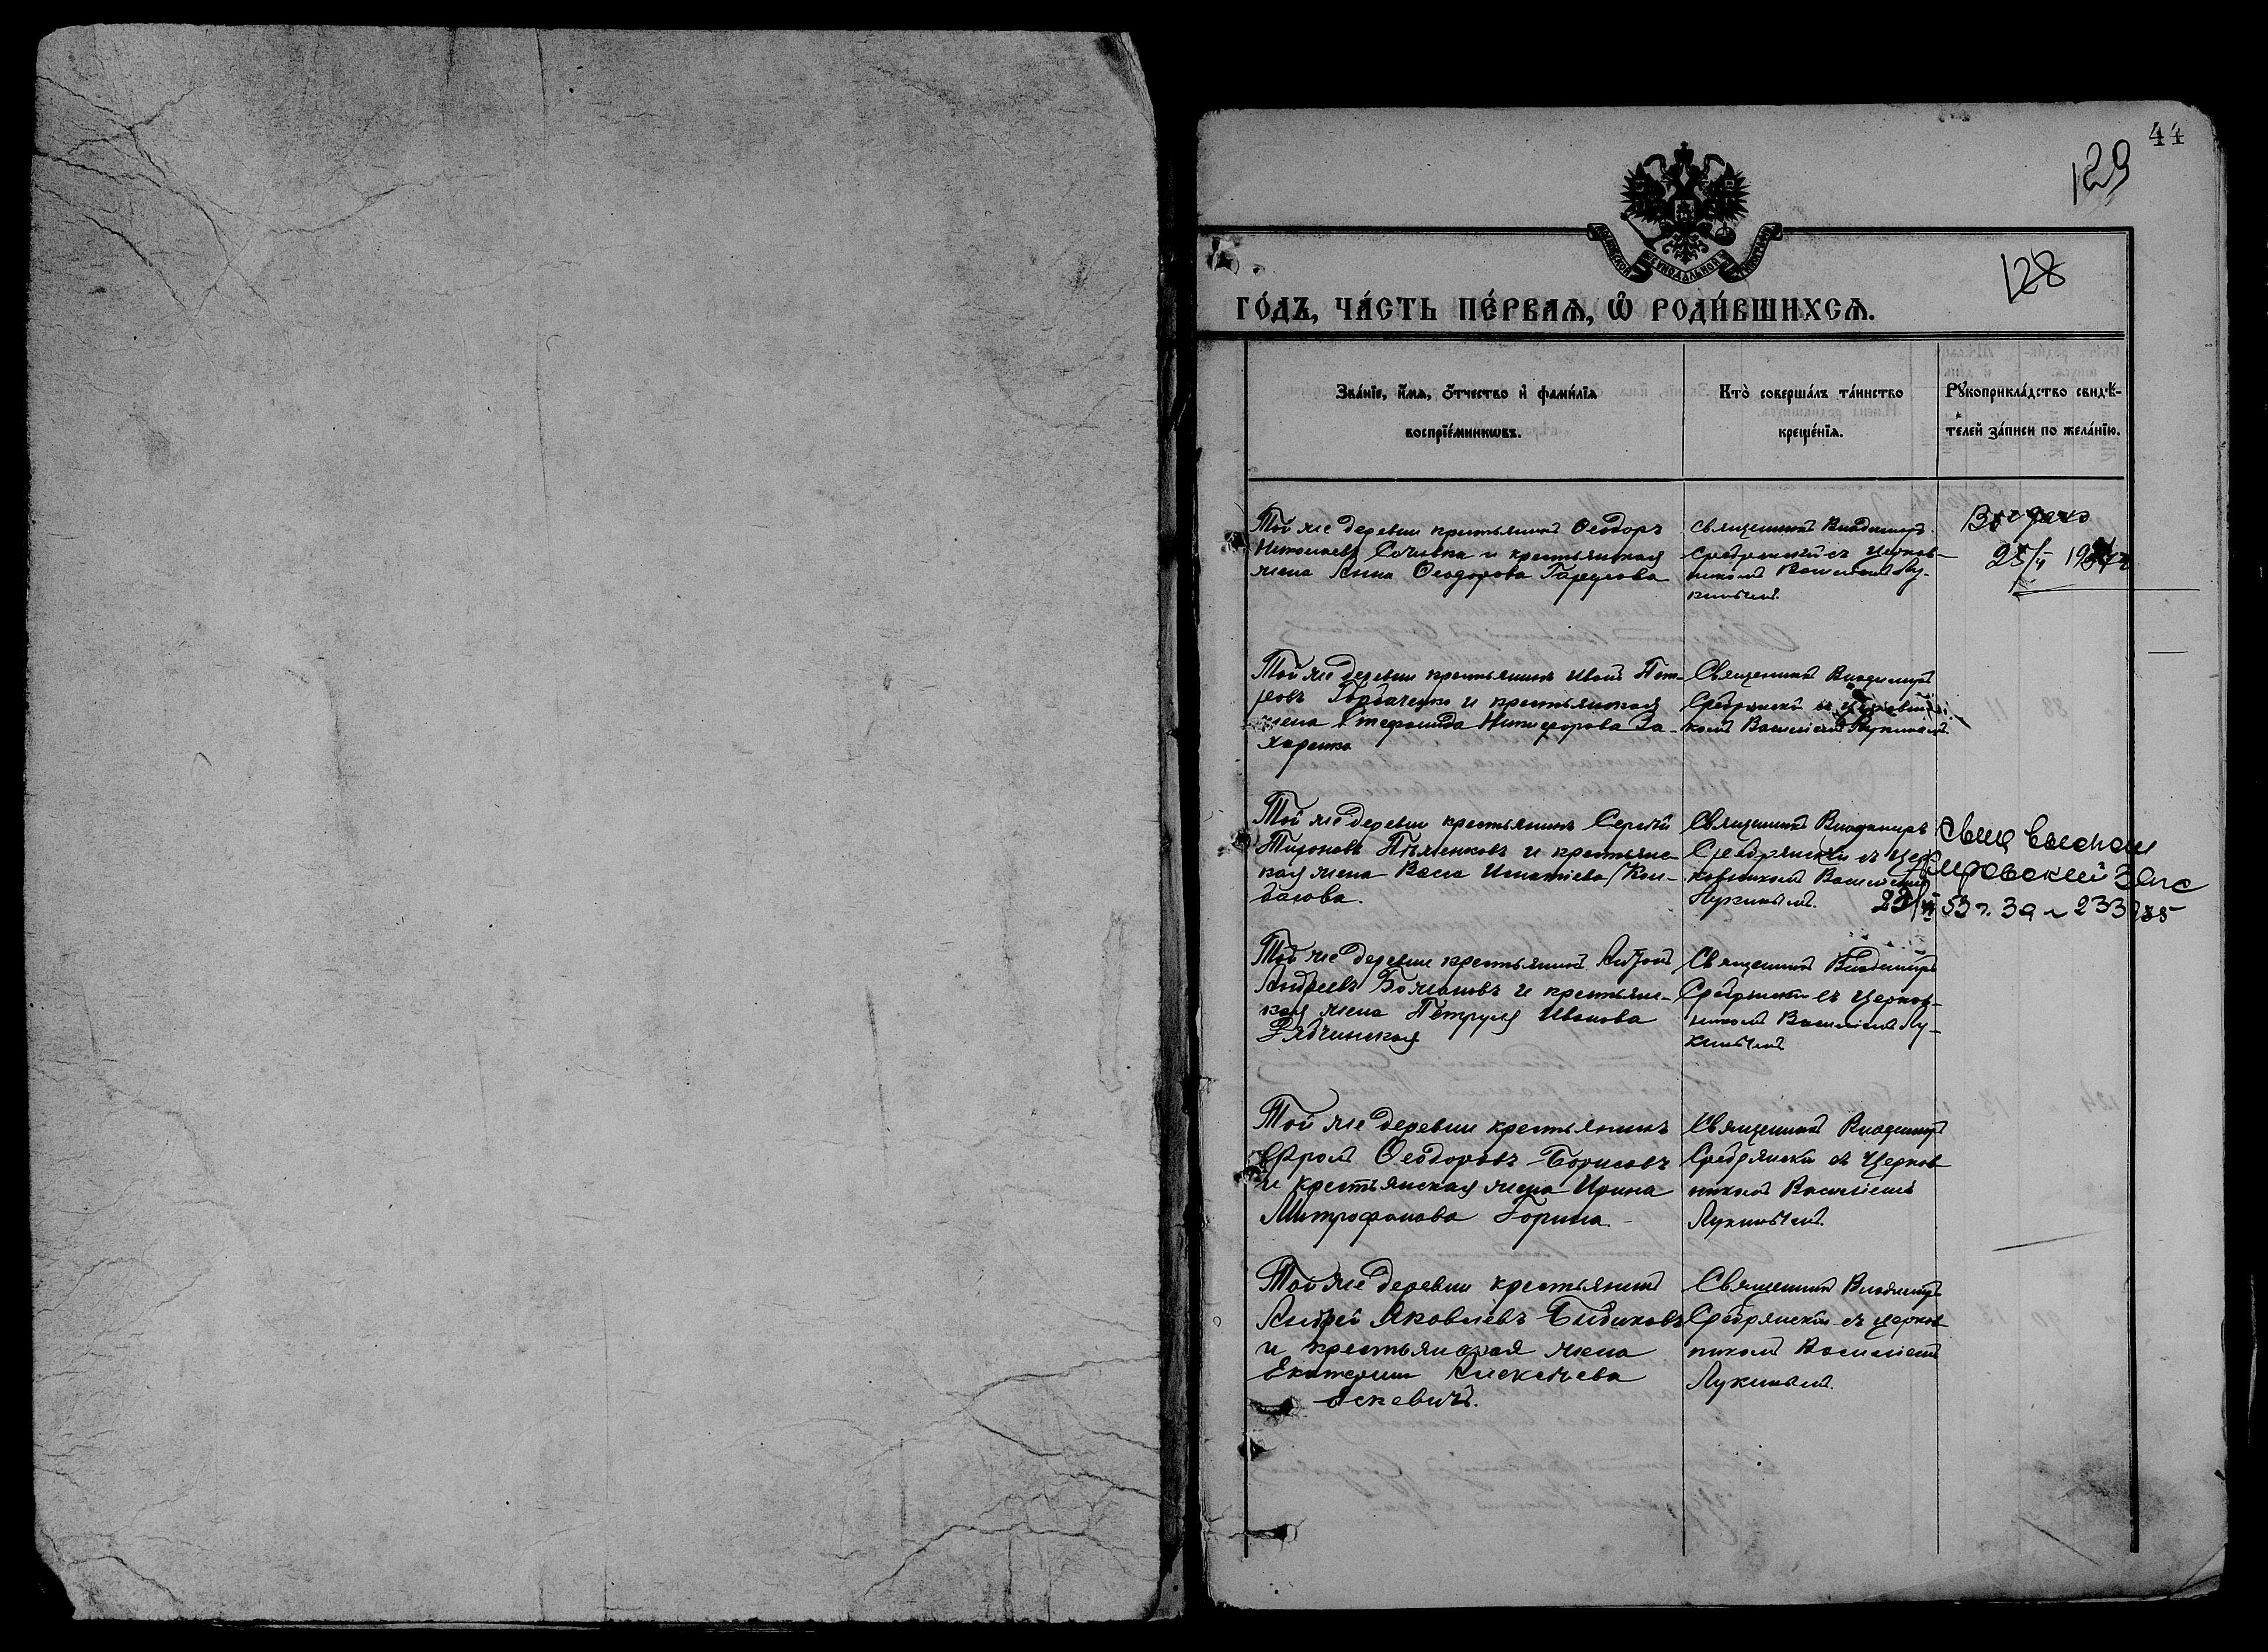 44
129
128
МОСКОВСКОЙ СѴНОДАЛЬНОЙ ТИПОГРАФІИ
ГО́ДЪ, ЧА́СТЬ ПЕ́РВАѦ, Ѡ҆ РОДИ́ВШИХСѦ.
Зва́нїе, и҆́мѧ, ѻ҆́тчество и҆ фамѝлїѧ
воспрїе́мникѡвъ.
Кто̀ соверша́лъ та́инство
креще́нїѧ.
Рꙋкоприкла́дство свидѣ́-
телей за́писи по жела́нїю.
Той же деревни крестьянинъ Ѳеодоръ
Николаевъ и крестьянская
жена Анна Ѳеодорова
Священникъ Владимиръ
Сребрянскій съ церков-
никомъ Василіемъ Лу-
кинымъ.
Той же деревни крестьянинъ Иванъ Пет-
ровъ Горбаченко и крестьянская
жена Стефанида Никифорова За-
харенко
Священникъ Владимиръ
Сребрянскій съ церковни-
комъ Василіемъ Лукинымъ
Той же деревни крестьянинъ Сергѣй
Тихоновъ и крестьянс-
кая жена Васса Игнатіева Кон-
дакова.
Священникъ Владимиръ
Сребрянскій съ цер-
ковникомъ Василіемъ
Лукинымъ.
Той же деревни крестьянинъ
Андреевъ и крестьянс-
кая жена Иванова
Рябчинская
Священникъ Владимиръ
Сребрянскій съ церков-
никомъ Василіемъ Лу-
кинымъ
Той же деревни крестьянинъ
Ѳеодоровъ Борисовъ
и крестьянская жена Ирина
Митрофанова Горина
Священникъ Владимиръ
Сребрянскій съ церков-
никомъ Василіемъ
Лукинымъ.
Той же деревни крестьянинъ
Андрей Яковлевъ Бибиковъ
и крестьянская жена
Екатерина Алексѣева
Священникъ Владимиръ
Сребрянскій съ церков-
никомъ Василіемъ
Лукинымъ.